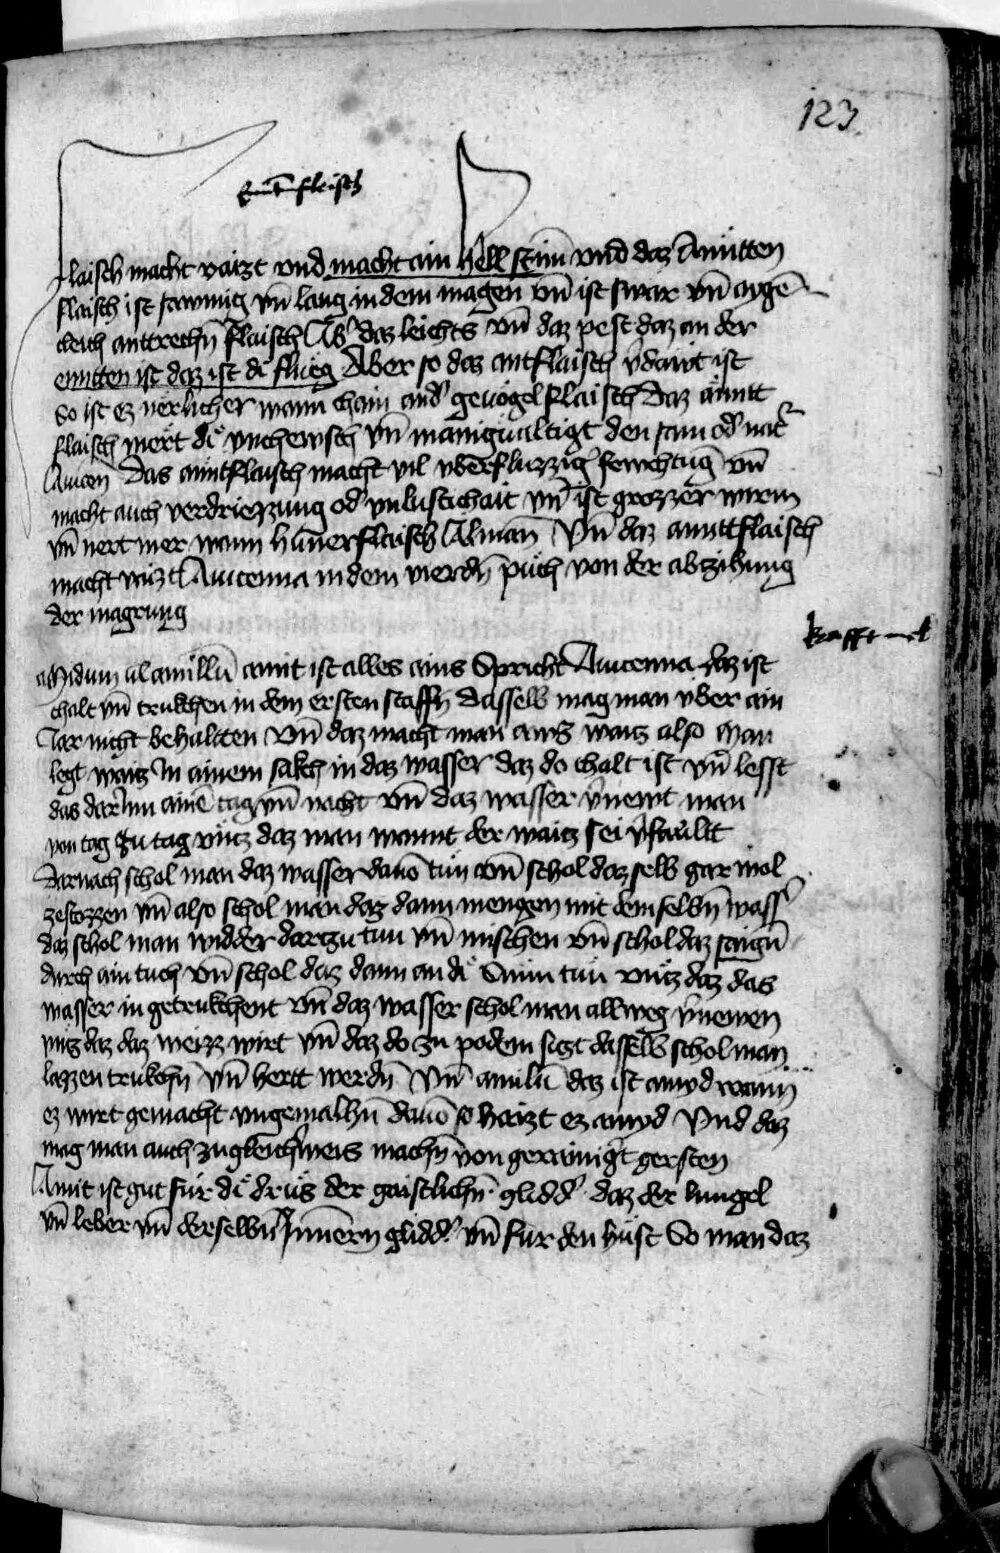 123
flaisch
flaisch macht vaizt vnd macht ain hell stim̄ vnd daz Anntten
flaisch ist sawmig vn̄ lang in dem magen vn̄ ist swar vn̄ aygē
leich anttrechn̄ flaisch Ab' daz leichts vn̄ daz pest daz an der
enntten ist daz ist di flüeg Aber so daz antflaisch v'dawt ist
so ist ez nerlicher wann chain and' geuögel flaisch Daz anntt
flaisch mert di vnchewsch vn̄ manigualtigt den sam od' nat'
Auicen Das anntflaisch macht vil vberflüzzig fewchtūg vn̄
macht auch verdriezzung od' vnlustichait vn̄ ist grozzer wirm
vn̄ nert mer wann hünerflaisch Alman̄ Vn̄ daz anttflaisch
macht vaizt Auicenna in dem vierdn̄ püch von der abzihung
der magrung
krafft mel
Amidum ul amillū amit ist alles ains Spricht Auicenna daz ist
chalt vn̄ trukchen in dem ersten staffn̄ dasselb mag man vber ain
Jar nicht behaltten vn̄ daz macht man aws waitz also Man
legt waitz in ainem sakch in daz wasser daz do chalt ist vn̄ lesst
das dar Inn ainē tag vn̄ nacht vn̄ daz wasser v'newt man
von tag zu tag vntz daz man wannt der waitz sei v'fawlt
Darnach schol man daz wasser dauō tün vn̄ schol daz selb gar wol
zestozzen vn̄ also schol man daz dann mengen mit dem selbn̄ wass'
daz schol man widder dartzu tun vn̄ mischen vn̄ schol daz saign̄
durch ain tuch vn̄ schol daz dann an di Sunn tün vntz daz das
wasser in getrukchent vn̄ daz wasser schol man allweg v'newen
vntz daz daz weizz wirt vn̄ daz do zu podem sitzt dasselb schol man
lazzen trukchn̄ vn̄ hertt werdn̄ Vn̄ amilū daz ist amyd wann
ez wirt gemacht vngemalhn̄ dauō so haizt ez amyd Vnd daz
mag man auch zu gleich'weis machn̄ von gerainigt gersten
Amit ist gut für di drüs der gaistlichn̄ glidd' daz der lungel
vn̄ leber vn̄ derselbn̄ Innern glidd' vn̄ für den hüst So man daz